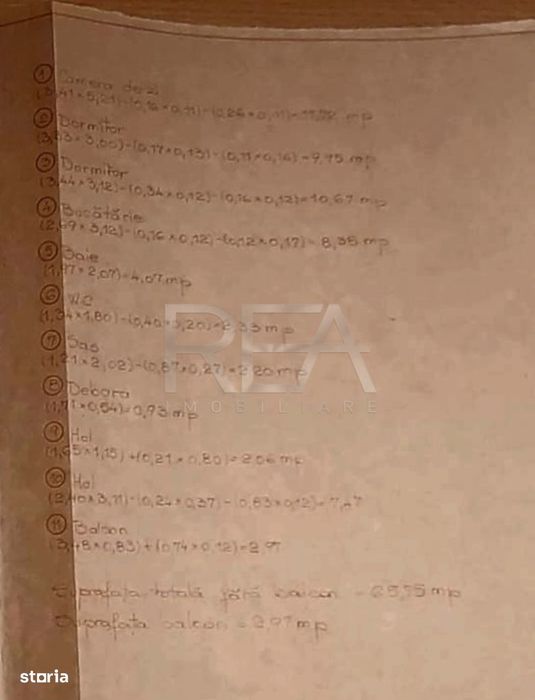 1 Camera de zi
(3,41×5,21)-(0,16×0,11)-(0,26×0,11)= mp
2 Dormitor
(3,33×3,00)-(0,17×0,13)-(0,11×0,16)=9,95 mp
3 Dormitor
(3,44×3,12)-(0,34×0,12)-(0,16×0,12)=10,67 mp
4 Bucătărie
(2,69×3,12)-(0,16×0,12)-(0,12×0,17)= 8,35 mp
5 Baie
(1,97×2,07)=4,07 mp
6 WC
(1,34×1,80)-(0,40×0,20)=2,33 mp
7 Sas
(1,21×2,02)-(0,87×0,27)=2,20 mp
8 Debara
(1,71×0,54)=0,93 mp
9 Hol
(1,65×1,15)+(0,21×0,80)=2,06 mp
10 Hol
(2,40×3,11)-(0,24×0,37)-(0,83×0,12)=
11 Balcon
(3,48×0,83)+(0,74×0,12)=2,97
Suprafața totală fără balcon = mp
Suprafața balcon = 2,97 mp
REA
IMOBILIARE
storia